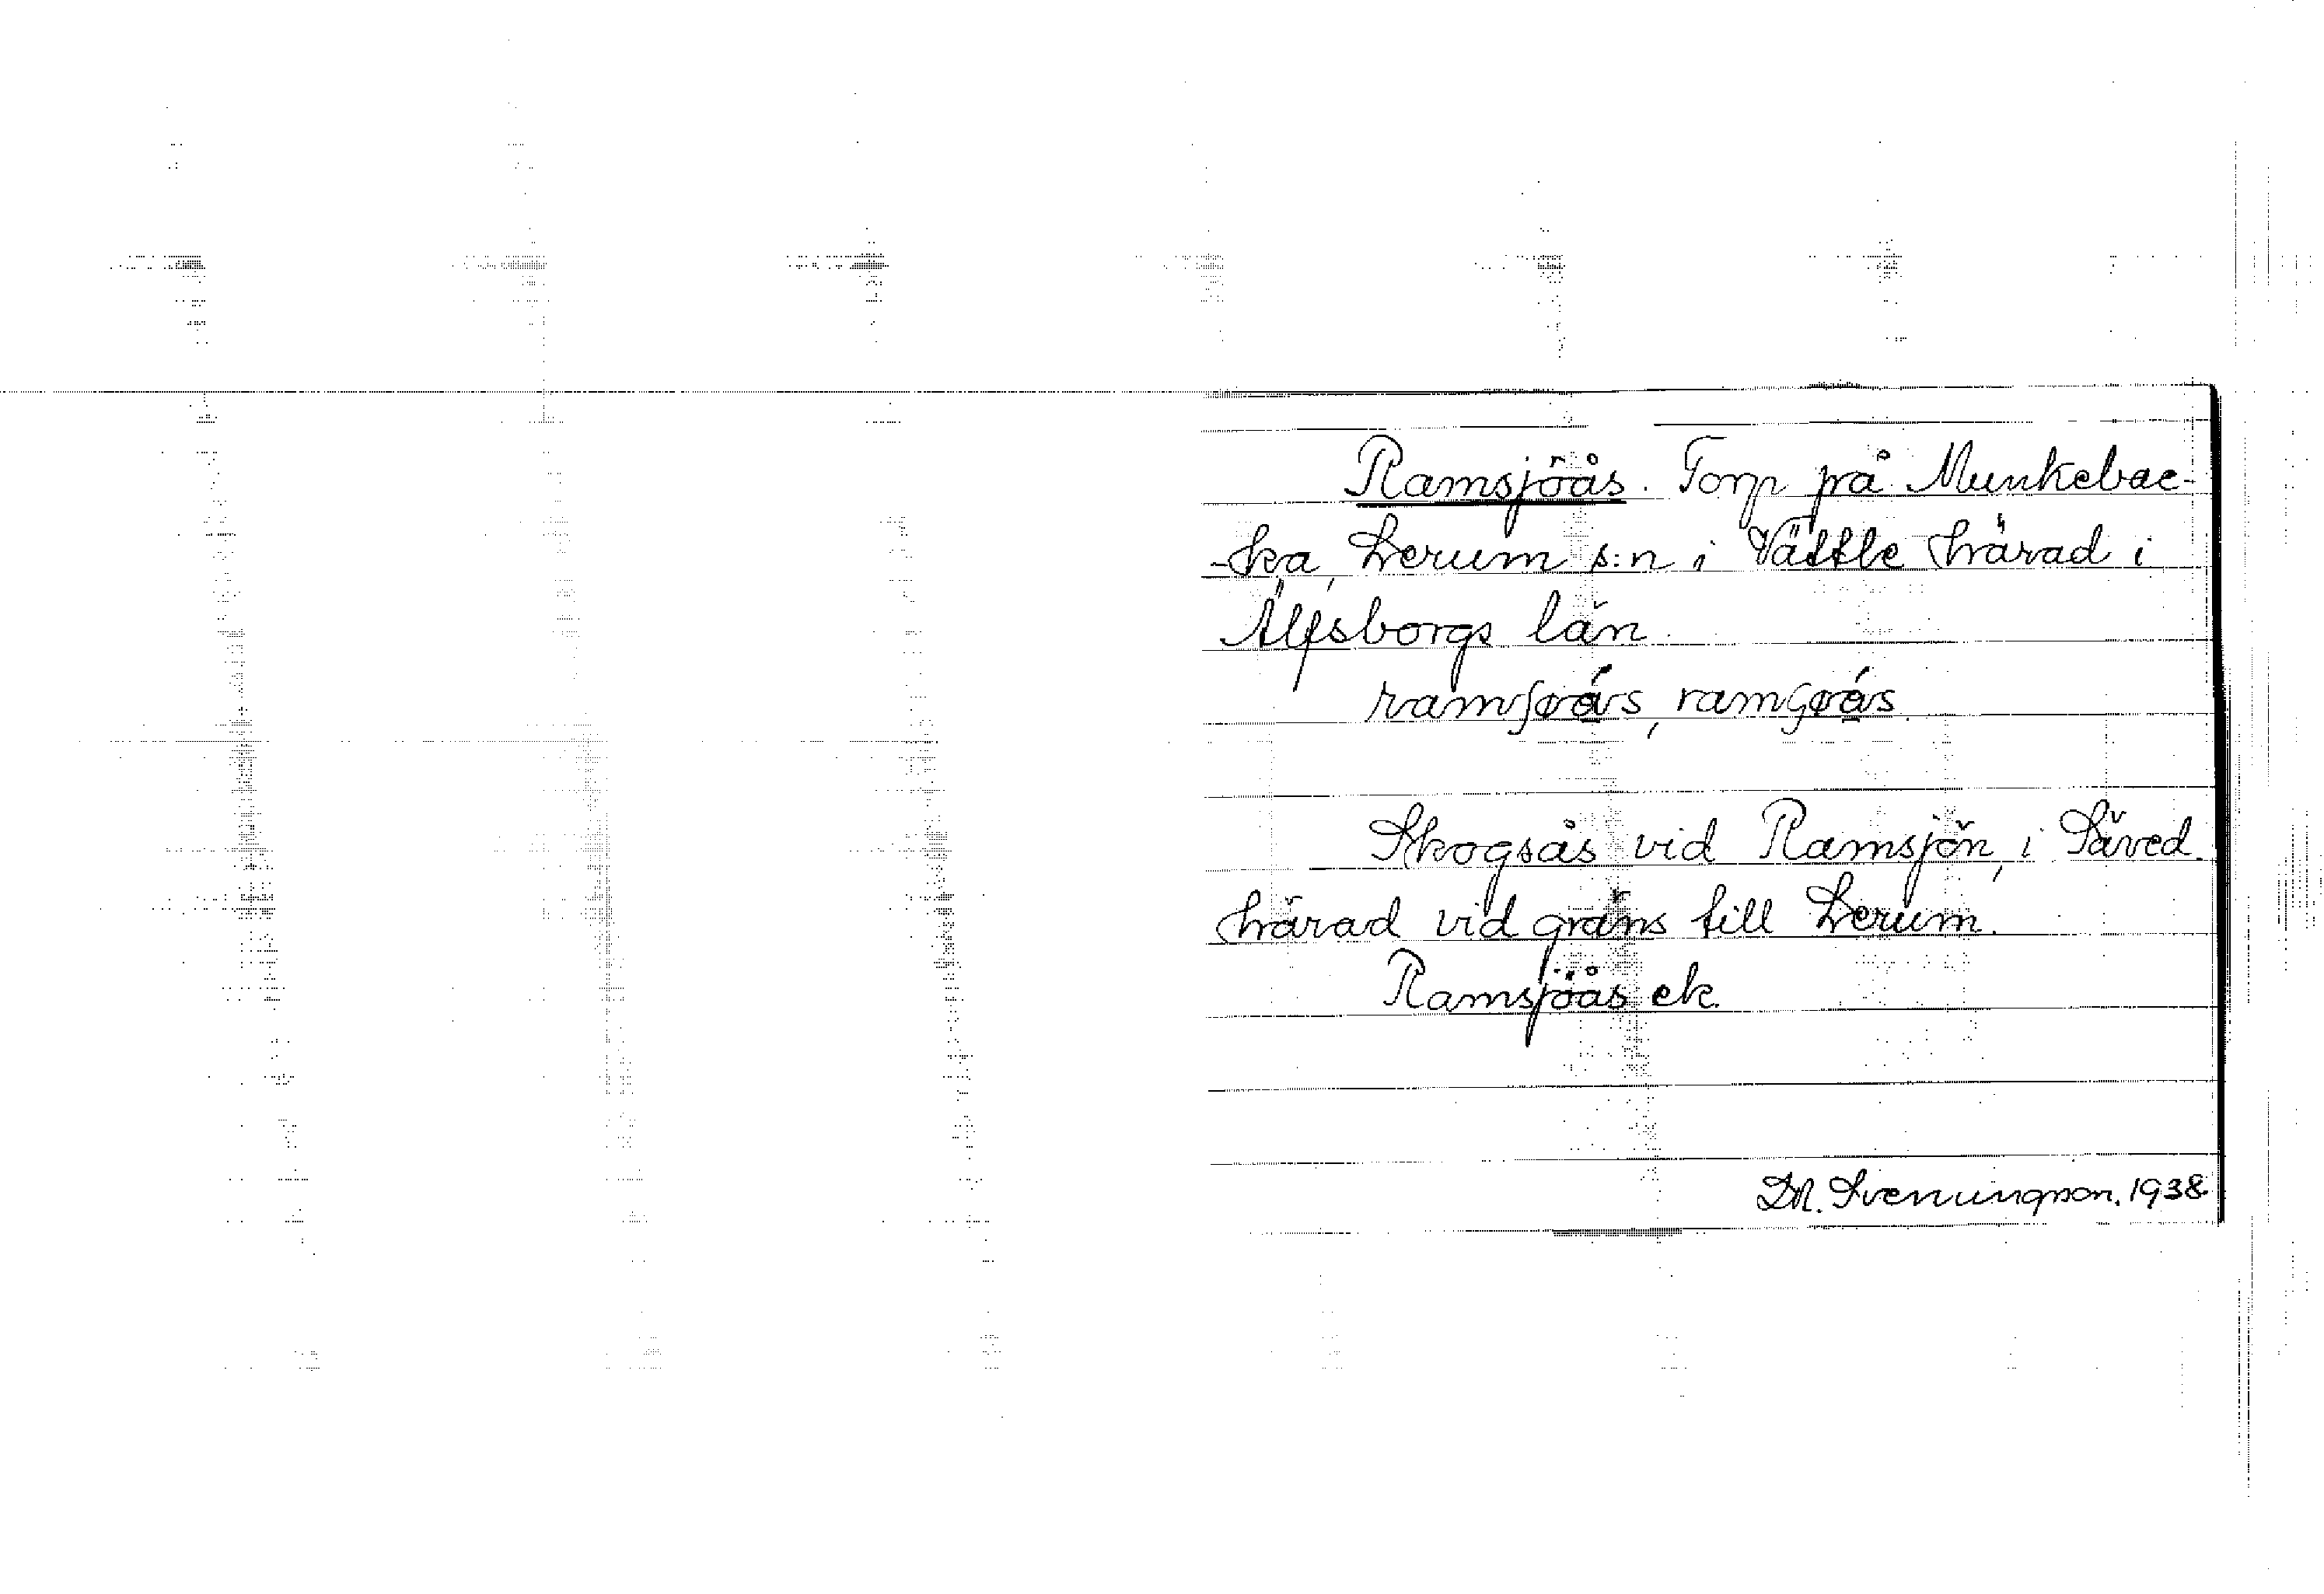 Ramsjöås. Torp på Munkebac-
-ka, Lerum s:n i Vättle härad i
Älfsborgs län.
Skogsås vid Ramsjön, i Säved.
härad vid gräns till Lerum.
Ramsjöås ek.
Svenungson. 1938